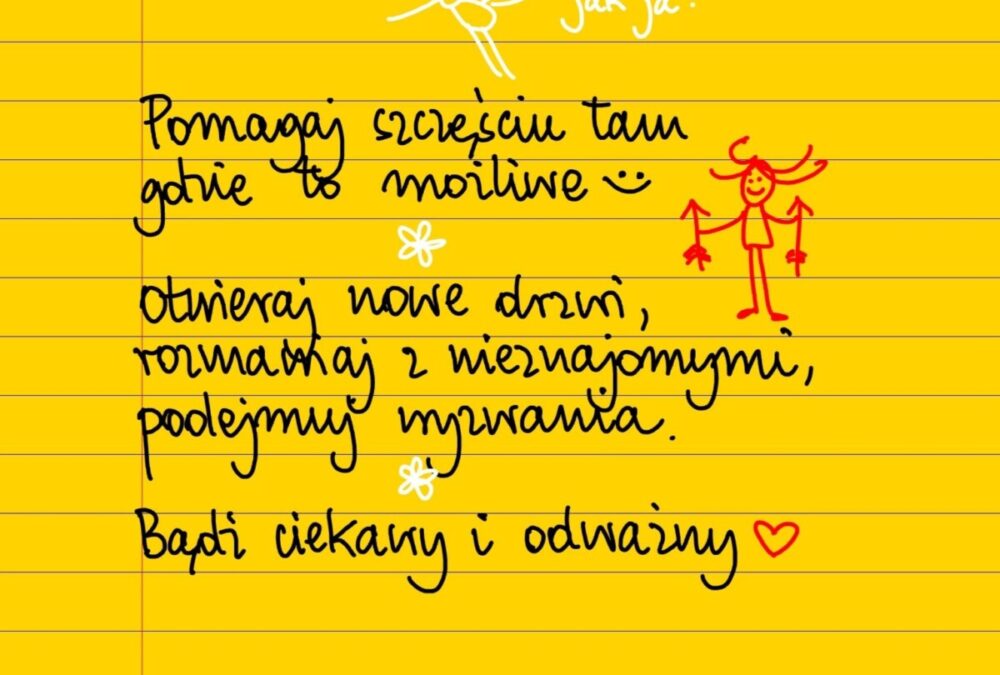 jak ja!
Pomagaj szczęściu tam
gdzie to możliwe
Otwieraj nowe drzwi,
rozmawiaj z nieznajomymi,
podejmuj wyzwania.
Bądź ciekawy i odważny